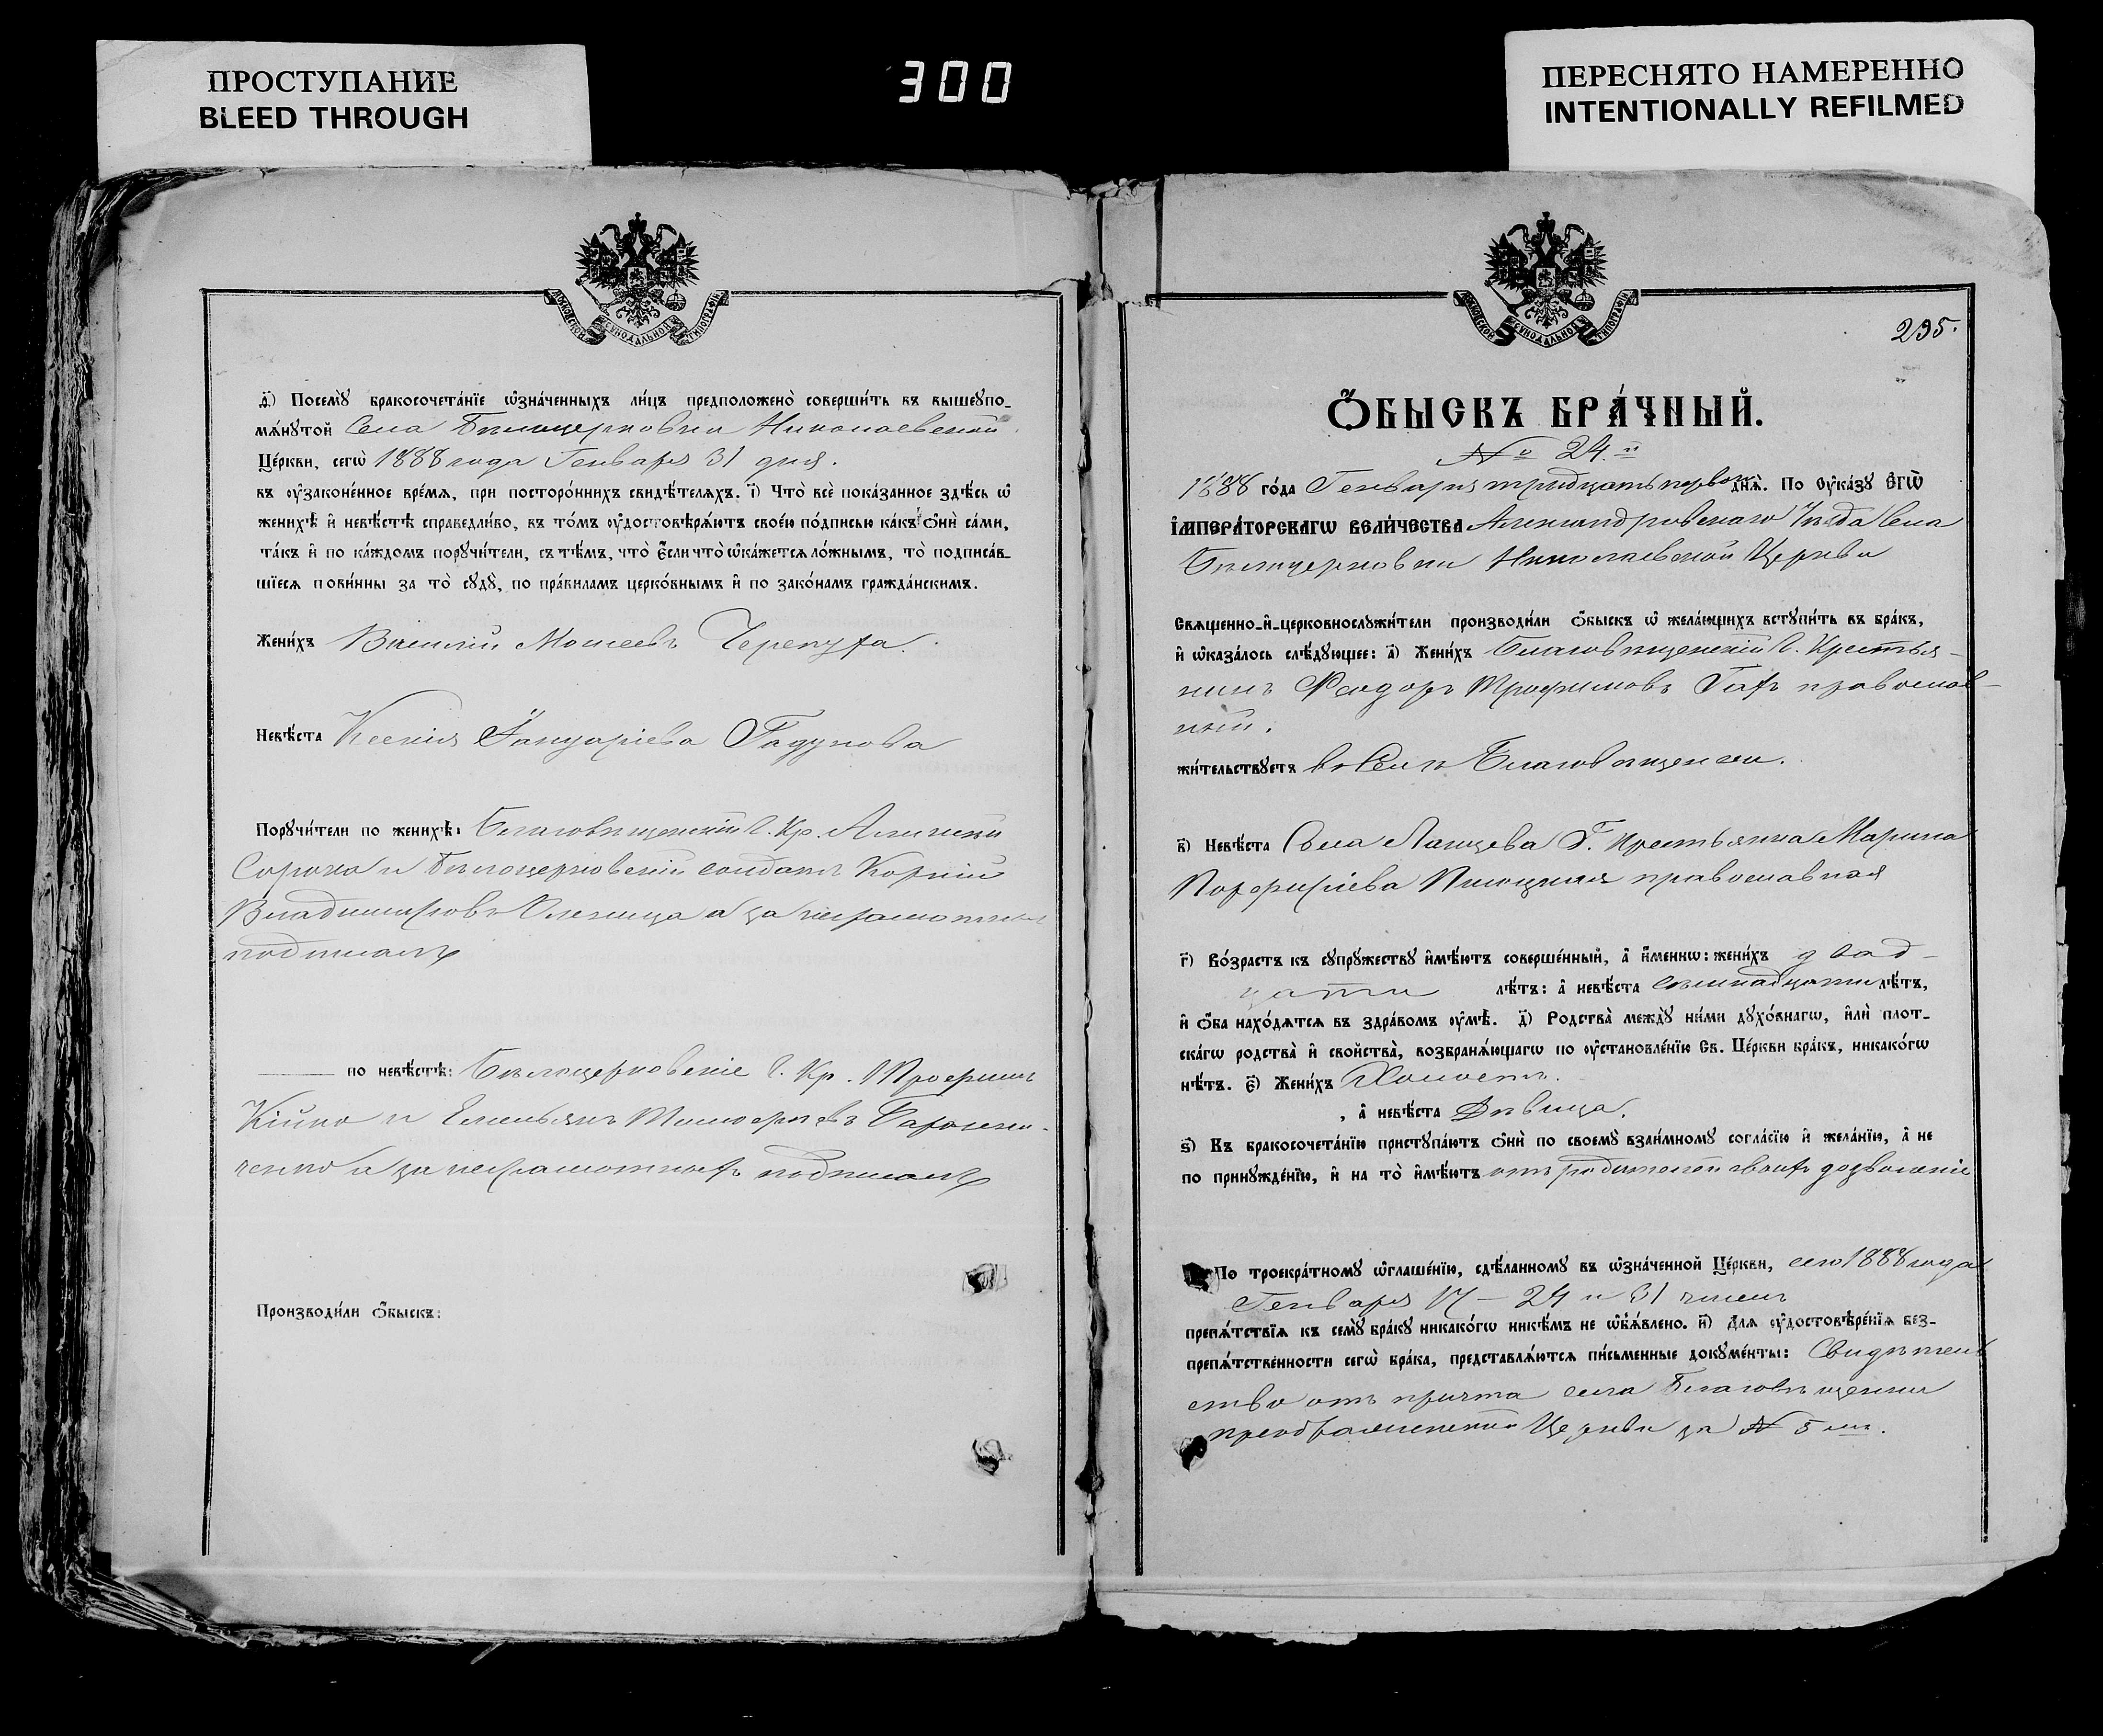 ПРОСТУПАНИЕ
BLEED THROUGH
300
ПЕРЕСНЯТО НАМЕРЕННО
INTENTIONALLY REFILMED
МОСКОВСКОЙ СѴНОДАЛЬНОЙ ТИПОГРАФІИ
Посемꙋ̀ бракосочета́нїе ѡ҆зна́ченныхъ ли́цъ предположено̀ соверши́ть въ вышеꙋпо-
мѧ́нꙋтой Села Бѣлоцерковки Николаевской
Це́ркви, сегѡ̀ 1888 года Генваря 31 дня.
въ ᲂу҆законе́нное вре́мѧ, при посторо́ннихъ свидѣ́телѧхъ. і҃) Что̀ всѐ пока́занное здѣ́сь ѡ҆
женихѣ̀ и҆ невѣ́стѣ справедли́во, въ то́мъ ᲂу҆достовѣрѧ́ютъ свое́ю по́дписью ка́къ ѻ҆нѝ са́ми,
та́къ и҆ по ка́ждомъ порꙋчи́тели, съ тѣ́мъ, что̀ є҆́сли что̀ ѡ҆ка́жетсѧ ло́жнымъ, то̀ подписа́в-
шїесѧ пови́нны за то̀ сꙋдꙋ̀, по пра́виламъ церко́внымъ и҆ по зако́намъ гражда́нскимъ.
Жени́хъ Василій Моисеевъ Черепуха.
Невѣ́ста Ксенія Іануаріева Гадунова
Порꙋчи́тели по женихѣ̀: Благовѣщенскій С. Кр. Алексѣй
Сорока и Бѣлоцерковскій солдатъ Корній
Владиміровъ а за неграмотныхъ
подписалъ
по невѣ́стѣ: Бѣлоцерковскіе С. Кр. Трофимъ
Кійко и Емельянъ Тимофеевъ
а за неграмотныхъ подписалъ
Производи́ли ѻ҆́быскъ:
МОСКОВСКОЙ СѴНОДАЛЬНОЙ ТИПОГРАФІИ
295.
Ѻ҆́БЫСКЪ БРА́ЧНЫЙ.
№ 24.й
1888 го́да Генваря тридцать перваго днѧ̀. По Оу҆ка́зꙋ Є҆гѡ̀
І҆мпера́торскагѡ Вели́чества Александровскаго Уѣзда Села
Бѣлоцерковки Николаевской Церкви
Свѧщенно-и҆-церковнослꙋжи́тели производи́ли ѻ҆́быскъ ѡ҆ жела́ющихъ встꙋпи́ть въ бра́къ,
и҆ ѡ҆каза́лось слѣ́дꙋющее: а҃) Жени́хъ Благовѣщенскій С. Крестья-
нинъ Феодоръ Трофимовъ Гах православ-
ный.
жи́тельствꙋетъ въ Селѣ Благовѣщенски.
в҃) Невѣ́ста Села Г. Крестьянка Марина
Порфиріева православная
г҃) Во́зрастъ къ сꙋпрꙋ́жествꙋ и҆мѣ́ютъ соверше́нный, а҆ и҆́меннѡ: жени́хъ двад-
цати лѣ́тъ: а҆ невѣ́ста семнадцати лѣ́тъ,
и҆ ѻ҆́ба нахо́дѧтсѧ въ здра́вомъ ᲂу҆мѣ̀. д҃) Родства̀ междꙋ̀ ни́ми дꙋхо́внагѡ, и҆лѝ плот-
ска́гѡ родства̀ и҆ свойства̀, возбранѧ́ющагѡ по ᲂу҆становле́нїю Св. Це́ркви бра́къ, никако́гѡ
нѣ́тъ. є҃) Жени́хъ Холостъ.
, а҆ невѣ́ста Дѣвица.
ѕ҃) Къ бракосочета́нїю пристꙋпа́ютъ ѻ҆нѝ по своемꙋ̀ взаи́мномꙋ согла́сїю и҆ жела́нїю, а҆ не
по принꙋжде́нїю, и҆ на то̀ и҆мѣ́ютъ отъ родителей своихъ дозволеніе
По троекра́тномꙋ ѡ҆глаше́нїю, сдѣ́ланномꙋ въ ѡ҆зна́ченной Це́ркви, сего 1888 года
Генваря 17 – 24 и 31 чиселъ
препѧ́тствїѧ къ семꙋ̀ бра́кꙋ никако́гѡ никѣ́мъ не ѡ҆б̾ѧ́влено. и҃) Для ᲂу҆достовѣре́нїѧ без-
препѧ́тственности сегѡ̀ бра́ка, представлѧ́ютсѧ пи́сьменные докꙋме́нты: Свидѣтель
ство отъ причта села Благовѣщенки
преображенской Церкви за № 5